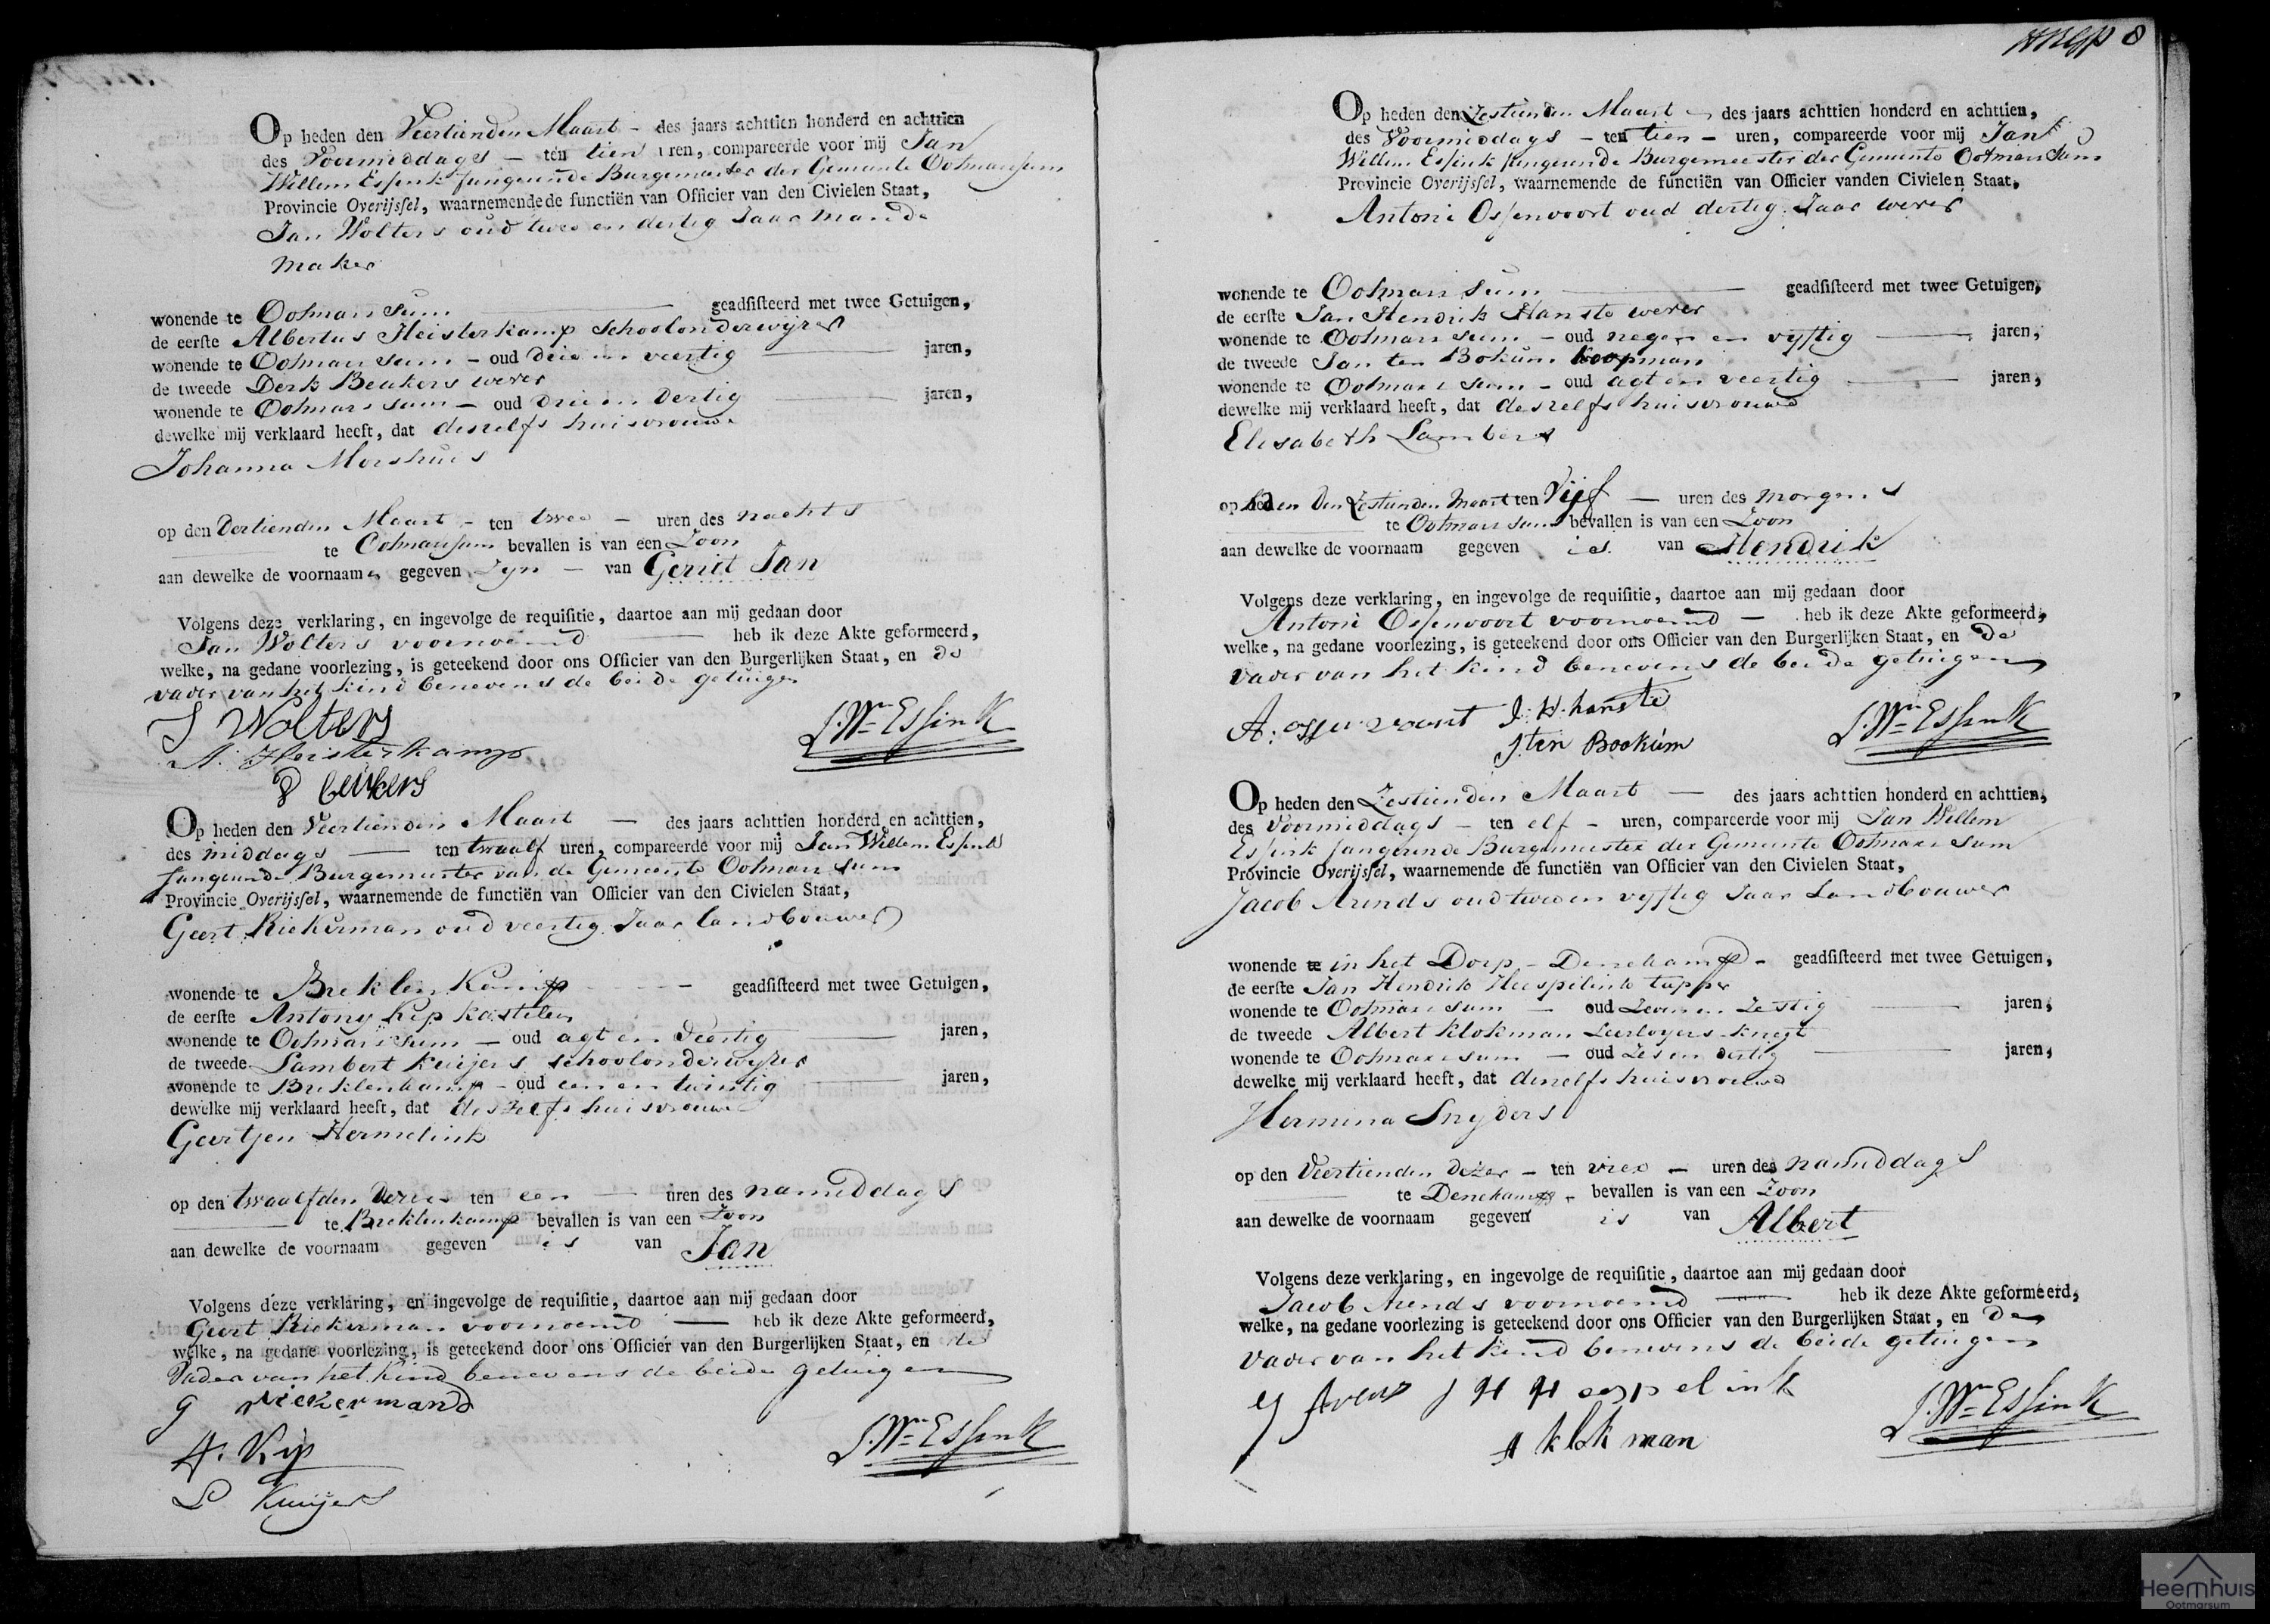 Op heden den Veertienden Maart - des jaars achttien honderd en achttien
des Voormiddags - ten tien uren, compareerde voor mij Jan
Willem Essink fungerende Burgemeester der Gemeente Ootmarssum
Provincie Overijsſel, waarnemende de functiën van Officier van den Civielen Staat,
Jan Wolters oud twee en dertig Jaar Mande
maker
wonende te Ootmarssum geadſiſteerd met twee Getuigen,
de eerſte Albertus Heisterkamp Schoolonderwijzer
wonende te Ootmarssum - oud drie en veertig jaren,
de tweede Derk Beukers wever
wonende te Ootmarssum - oud drie en dertig jaren,
dewelke mij verklaard heeft, dat deszelfs huisvrouwe
Johanna Morshuis
op den dertienden Maart - ten twee - uren des nachts
te Ootmarssum bevallen is van een Zoon
aan dewelke de voornaamen gegeven zyn - van Gerrit Jan
Volgens deze verklaring, en ingevolge de requiſitie, daartoe aan mij gedaan door
Jan Wolters voornoemd heb ik deze Akte geformeerd,
welke, na gedane voorlezing, is geteekend door ons Officier van den Burgerlijken Staat, en de
vader van het kind benevens de beide getuigen
J Wolters
A. Heisterkamp
D beukers
J. Wm Essink
Op heden den Veertienden Maart - des jaars achttien honderd en achttien,
des middags ten twaalf uren, compareerde voor mij Jan Willem Essink
fungerende Burgemeester van de Gemeente Ootmarssum
Provincie Overijsſel, waarnemende de functiën van Officier van den Civielen Staat,
Geert Riekerman oud veertig Jaar landbouwer
wonende te Breklenkamp geadſiſteerd met twee Getuigen,
de eerſte Antony Kip kastelen
wonende te Ootmarssum - oud agt en veertig jaren,
de tweede Lambert Kuijers schoolonderwyzer
wonende te Breklenkamp - oud een en twintig jaren,
dewelke mij verklaard heeft, dat deszelfs huisvrouwe
Geertjen Hermelink
op den twaalfden dezer ten een uren des namiddags
te Breklenkamp bevallen is van een Zoon
aan dewelke de voornaam gegeven is van Jan
Volgens deze verklaring, en ingevolge de requiſitie, daartoe aan mij gedaan door
Geert Riekerman voornoemd heb ik deze Akte geformeerd,
welke, na gedane voorlezing, is geteekend door ons Officier van den Burgerlijken Staat, en de
Vader van het kind benevens de beide getuigen
G riekermand
A. Kip
L Kuijers
J. Wm Essink
8
Op heden den Zestienden Maart des jaars achttien honderd en achttien,
des Voormiddags - ten tien - uren, compareerde voor mij Jan
Willem Essink fungerende Burgemeester der Gemeente Ootmarssum
Provincie Overijsſel, waarnemende de functiën van Officier vanden Civielen Staat,
Antoni Ossenvoort oud dertig Jaar wever
wonende te Ootmarssum geadſiſteerd met twee Getuigen,
de eerſte Jan Hendrik Hanste wever
wonende te Ootmarssum - oud negen en vyftig jaren,
de tweede Jan ten Bokum koopman
wonende te Ootmarssum - oud agt en veertig jaren,
dewelke mij verklaard heeft, dat deszelfs huisvrouwe
Elisabeth Lambers
op heden den Zestienden Maart ten Vijf - uren des morgens
te Ootmarssum bevallen is van een Zoon
aan dewelke de voornaam gegeven is van Hendrik
Volgens deze verklaring, en ingevolge de requiſitie, daartoe aan mij gedaan door
Antoni Ossenvoort voornoemd - heb ik deze Akte geformeerd,
welke, na gedane voorlezing, is geteekend door ons Officier van den Burgerlijken Staat, en de
vader van het kind benevens de beide getuigen
A: ossenvoort J. H. hanste
J ten Bookum
J. Wm Essink
Op heden den Zestienden Maart - des jaars achttien honderd en achttien,
des Voormiddags - ten elf - uren, compareerde voor mij Jan Willem
Essink fungerende Burgemeester der Gemeente Ootmarssum
Provincie Overijsſel, waarnemende de functiën van Officier van den Civielen Staat,
Jacob Arends oud twee en vyftig Jaar Landbouwer
wonende te in het Dorp - Denekamp - geadſiſteerd met twee Getuigen,
de eerſte Jan Hendrik Heespelink tapper
wonende te Ootmarssum - oud Zeven en Zestig jaren,
de tweede Albert Klokman Leerloyers knegt
wonende te Ootmarssum - oud Zes en dertig jaren,
dewelke mij verklaard heeft, dat deszelfs huisvrouwe
Hermina Snyders
op den Veertienden dezer - ten vier - uren des namiddags
te Denekamp - bevallen is van een Zoon
aan dewelke de voornaam gegeven is van Albert
Volgens deze verklaring, en ingevolge de requiſitie, daartoe aan mij gedaan door
Jacob Arends voornoemd heb ik deze Akte geformeerd,
welke, na gedane voorlezing is geteekend door ons Officier van den Burgerlijken Staat, en de
vader van het kind benevens de beide getuigen
J H Heespelink
A klokman
J. Wm Essink
Heemhuis
Ootmarsum